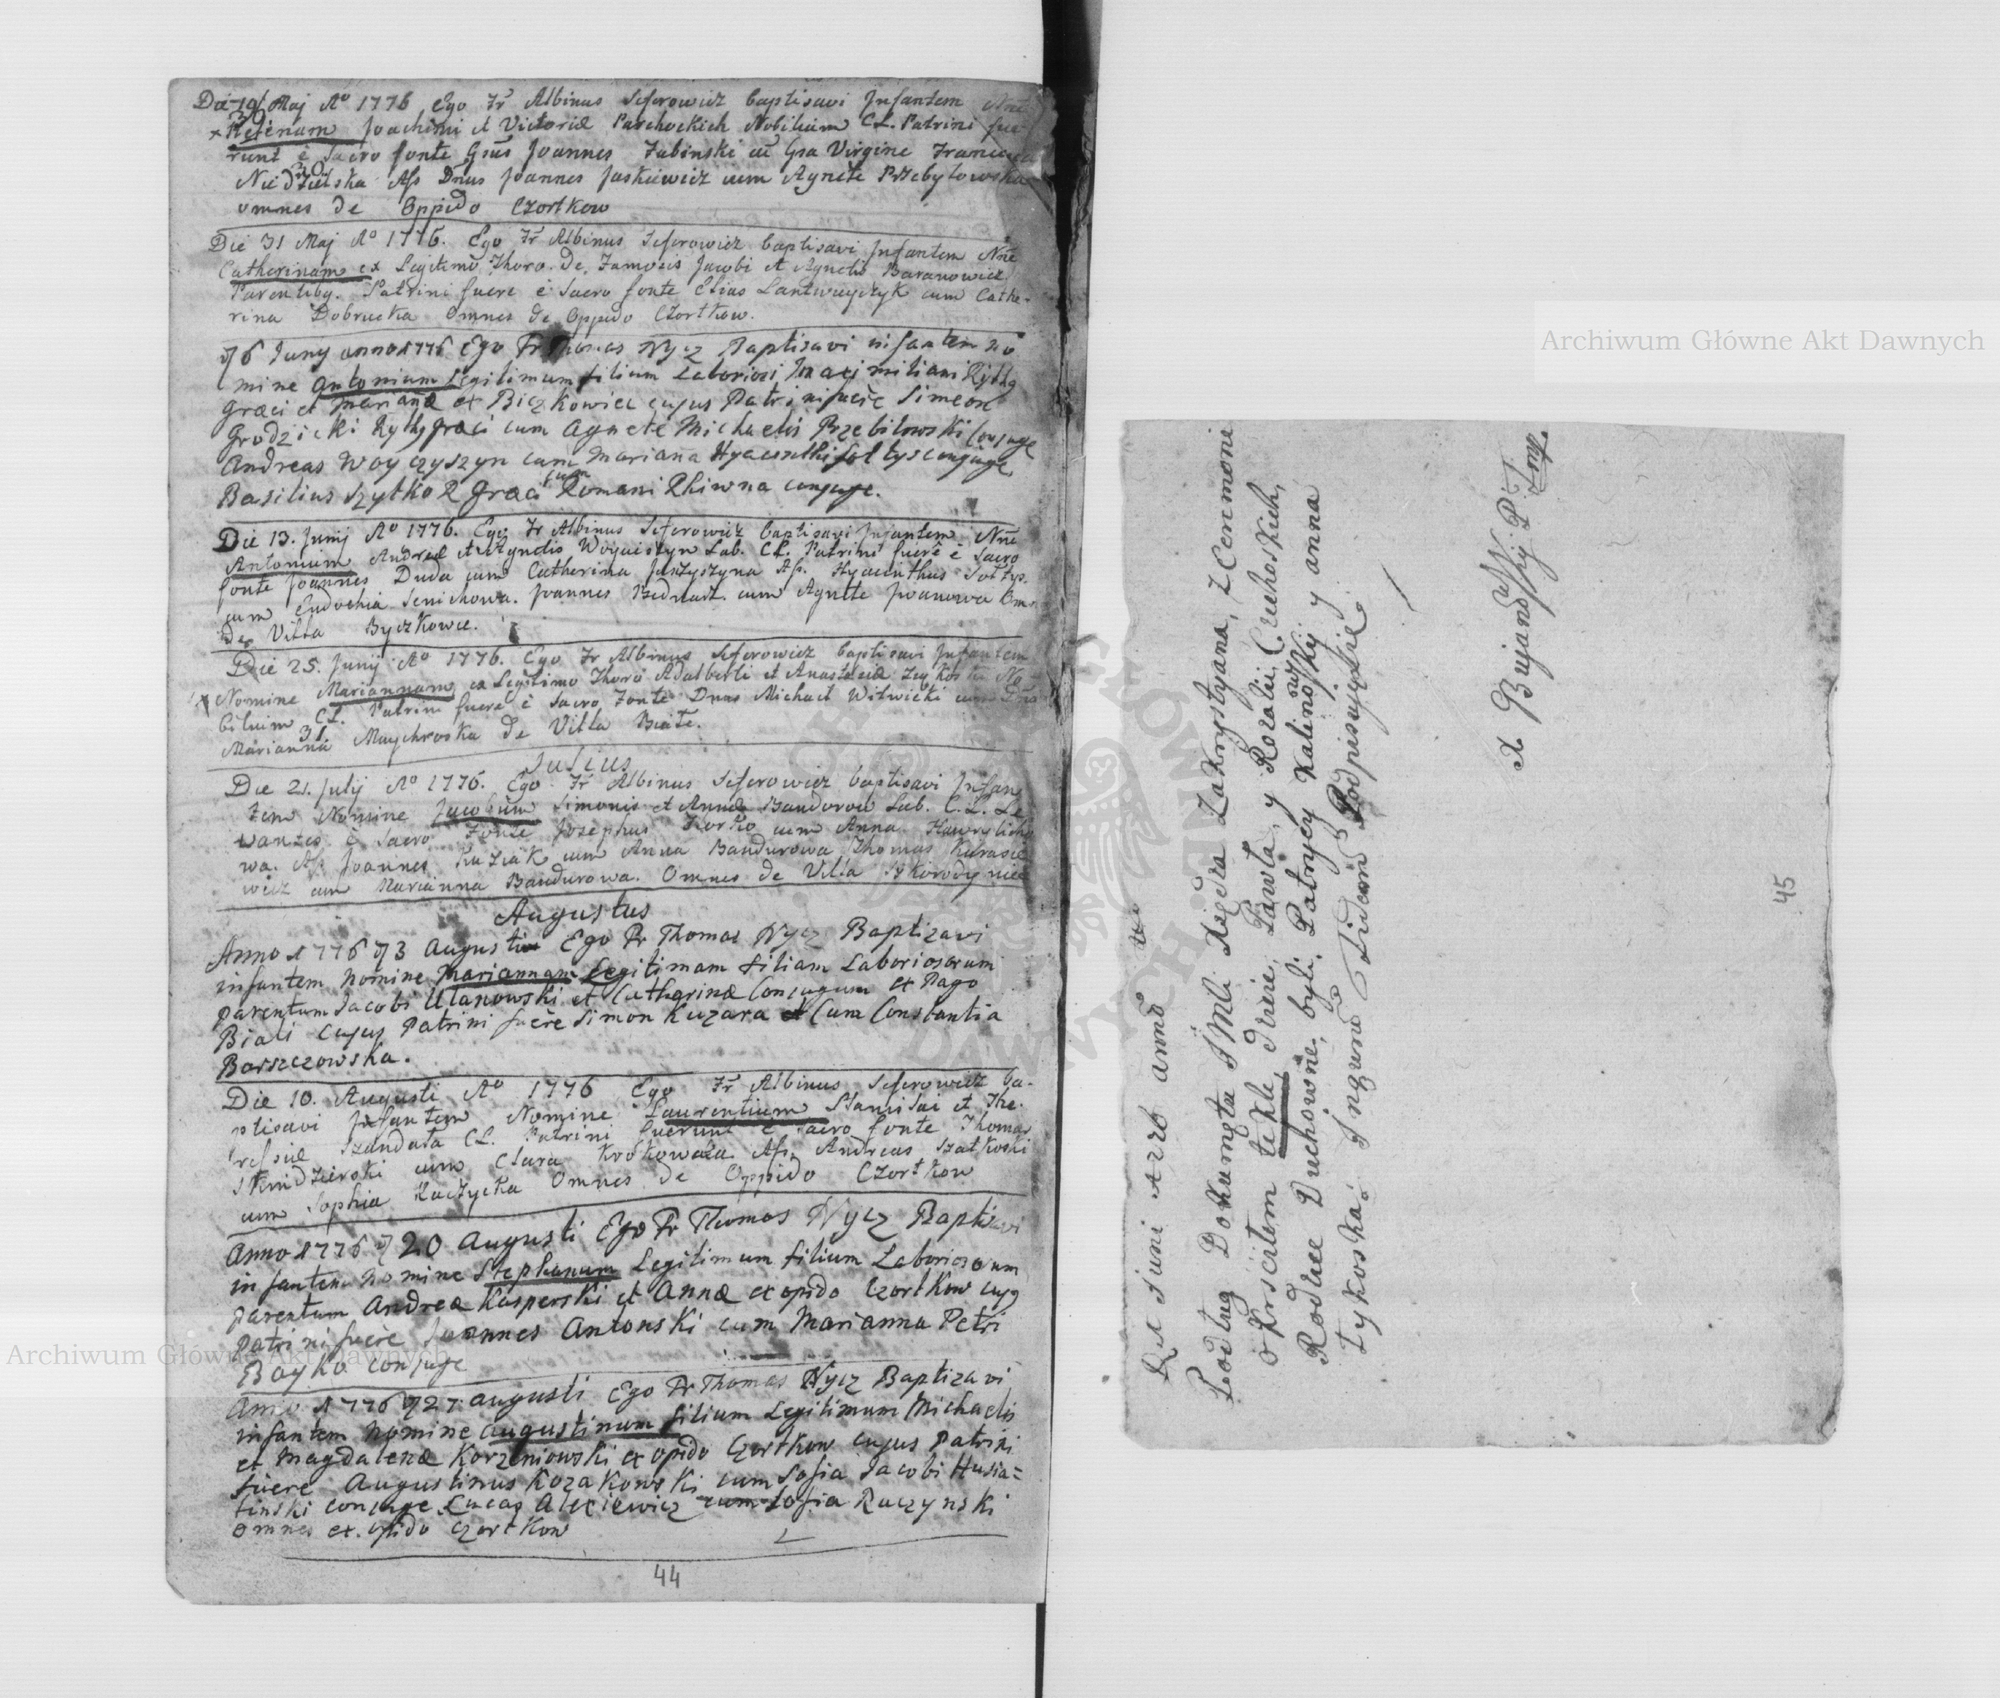 Die 19 Maj Aº 1776 Ego Fr Albinus Seferowicz baptisavi Infantem Nne
Helenam Joachimi et Victoriæ Parchockich Nobilium C.L. Patrini fue-
runt è Sacro fonte Gsus Joannes Zabinski cū Gsa Virgine Francisca
Niedzielska Ass Dnus Joannes Jaskiewicz cum Agnete Przebylowska
omnes de Oppido Czortkow
Die 31 Maj Aº 1776. Ego Fr Albinus Seferowicz baptisavi Infantem Nñe
Catherinam ex Legitimo Thoro de Famosis Jacobi et Agnetis Baranowicz
Parentibg. Patrini fuere è Sacro fonte Elias Lantwuyczyk cum Cathe-
rina Dobrucka Omnes de Oppido Czortkow.
6 Juny anno 1776 Ego Fr Thomas Nycz Baptisavi infantem no
mine Antonium Legitimum filium Laboriosi Rythg
Græci et Mariañæ ex Biczkowiec cujus Patrini fuère Simeon
Grodzicki Rythg græci cum Agnete Michaelis Przebilowski Conjuge
Andreas Woyczyszyn cum Mariana Hyacinthi Soltys conjuge
Basilius Szytko R Græci cum Romani Rhiwna conjuge.
Die 13. Junij Aº 1776. Ego Fr Albinus Seferowicz baptisavi Infantem Nñe
Antonium Andreæ et Agnetis Woyciszyn Lab. C.L. Patrini fuere è Sacro
fonte Joannes Duda cum Catherina Juszyszyna As. Hyacinthus Soltys.
cum Eudochia Senichowa. Joannes Bednarz cum Agnete Iwanowa Om.
de Villa Byczkowce.
Die 25. Junij Aº 1776. Ego Fr Albinus Seferowicz baptisavi Infantem
Nomine Mariannam ex Legitimo Thoro Adalberti et Anastasiæ No
bilium C.L. Patrini fuere è Sacro Fonte Dnus Michael Witwicki cum Dna
Marianna Maychroska de Villa Biale.
Julius
Die 21. Julij Aº 1776. Ego Fr Albinus Seferowicz baptisavi Infan
tem Nomine Jacobum Simonis et Annæ Bandurow Lab. C.L. Le
vantes è Sacro Fonte Josephus Horko cum Anna Hawrylich
wa. As Joannes Kuziak cum Anna Bandurowa Thomas Kurasie
wicz cum Marianna Bandurowa. Omnes de Villa Skorodynce
Augustus
Anno 1776 3 Augusti Ego Fr Thomas Nycz Baptizavi
infantem nomine Mariannam Legitimam filiam Laboriosorum
parentum Jacobi Ulanowski et Catherinæ Conjugum ex Pago
Biali Cujus Patrini fuère Simon Kuzara Cum Constantia
Barszczowska.
Die 10. Augusti Aº 1776 Ego Fr Albinus Seferowicz ba-
ptisavi Infantem Nomine Laurentium Stanislai et The-
resiæ Szandala C.L. Patrini fuerunt è Sacro fonte Thomas
Skindzierski cum Clara Krokowala As. Andreas Szatkoski
cum Sophia Raczycka Omnes de Oppido Czortkow
Anno 1776 20 Augusti Ego Fr Thomas Nycz Baptizavi
infantem nomine Stephanum Legitimum filium Laboriosorum
parentum Andreæ Kasperski et Annæ ex opido Czortkow cujg
patrini fuère Joannes Antonski cum Marianna Petri
Boyko conjuge
Anno 1776 27 Augusti Ego Fr Thomas Nycz Baptizavi
infantem nomine Augustinum filium Legitimum Michaelis
et Magdalenæ Korzeniowski ex opido Czortkow cujus Patrini
fuère Augustinus Kozakowski cum Sofia Jacobi Husia=
tinski conjuge Lucas Alexiewicz cum Sofia Raczynski
omnes ex opido Czortkow
44
Die Juni anno
Podlug Dokumętu JMci Xiędza Zakrystyana, z Ceremoni
okrscilem Teklę Dziecie, Pawla, y Rozalii Cruchoskich,
Rodzice Duchowne, byli Patrycy Kalinowskij y anna
Tykoska, Podpisuję się
X Bujanowskij P. T.
45
Archiwum Główne Akt Dawnych
Archiwum Główne Akt Dawnych
ARCHIWUM GŁÓWNE AKT DAWNYCH